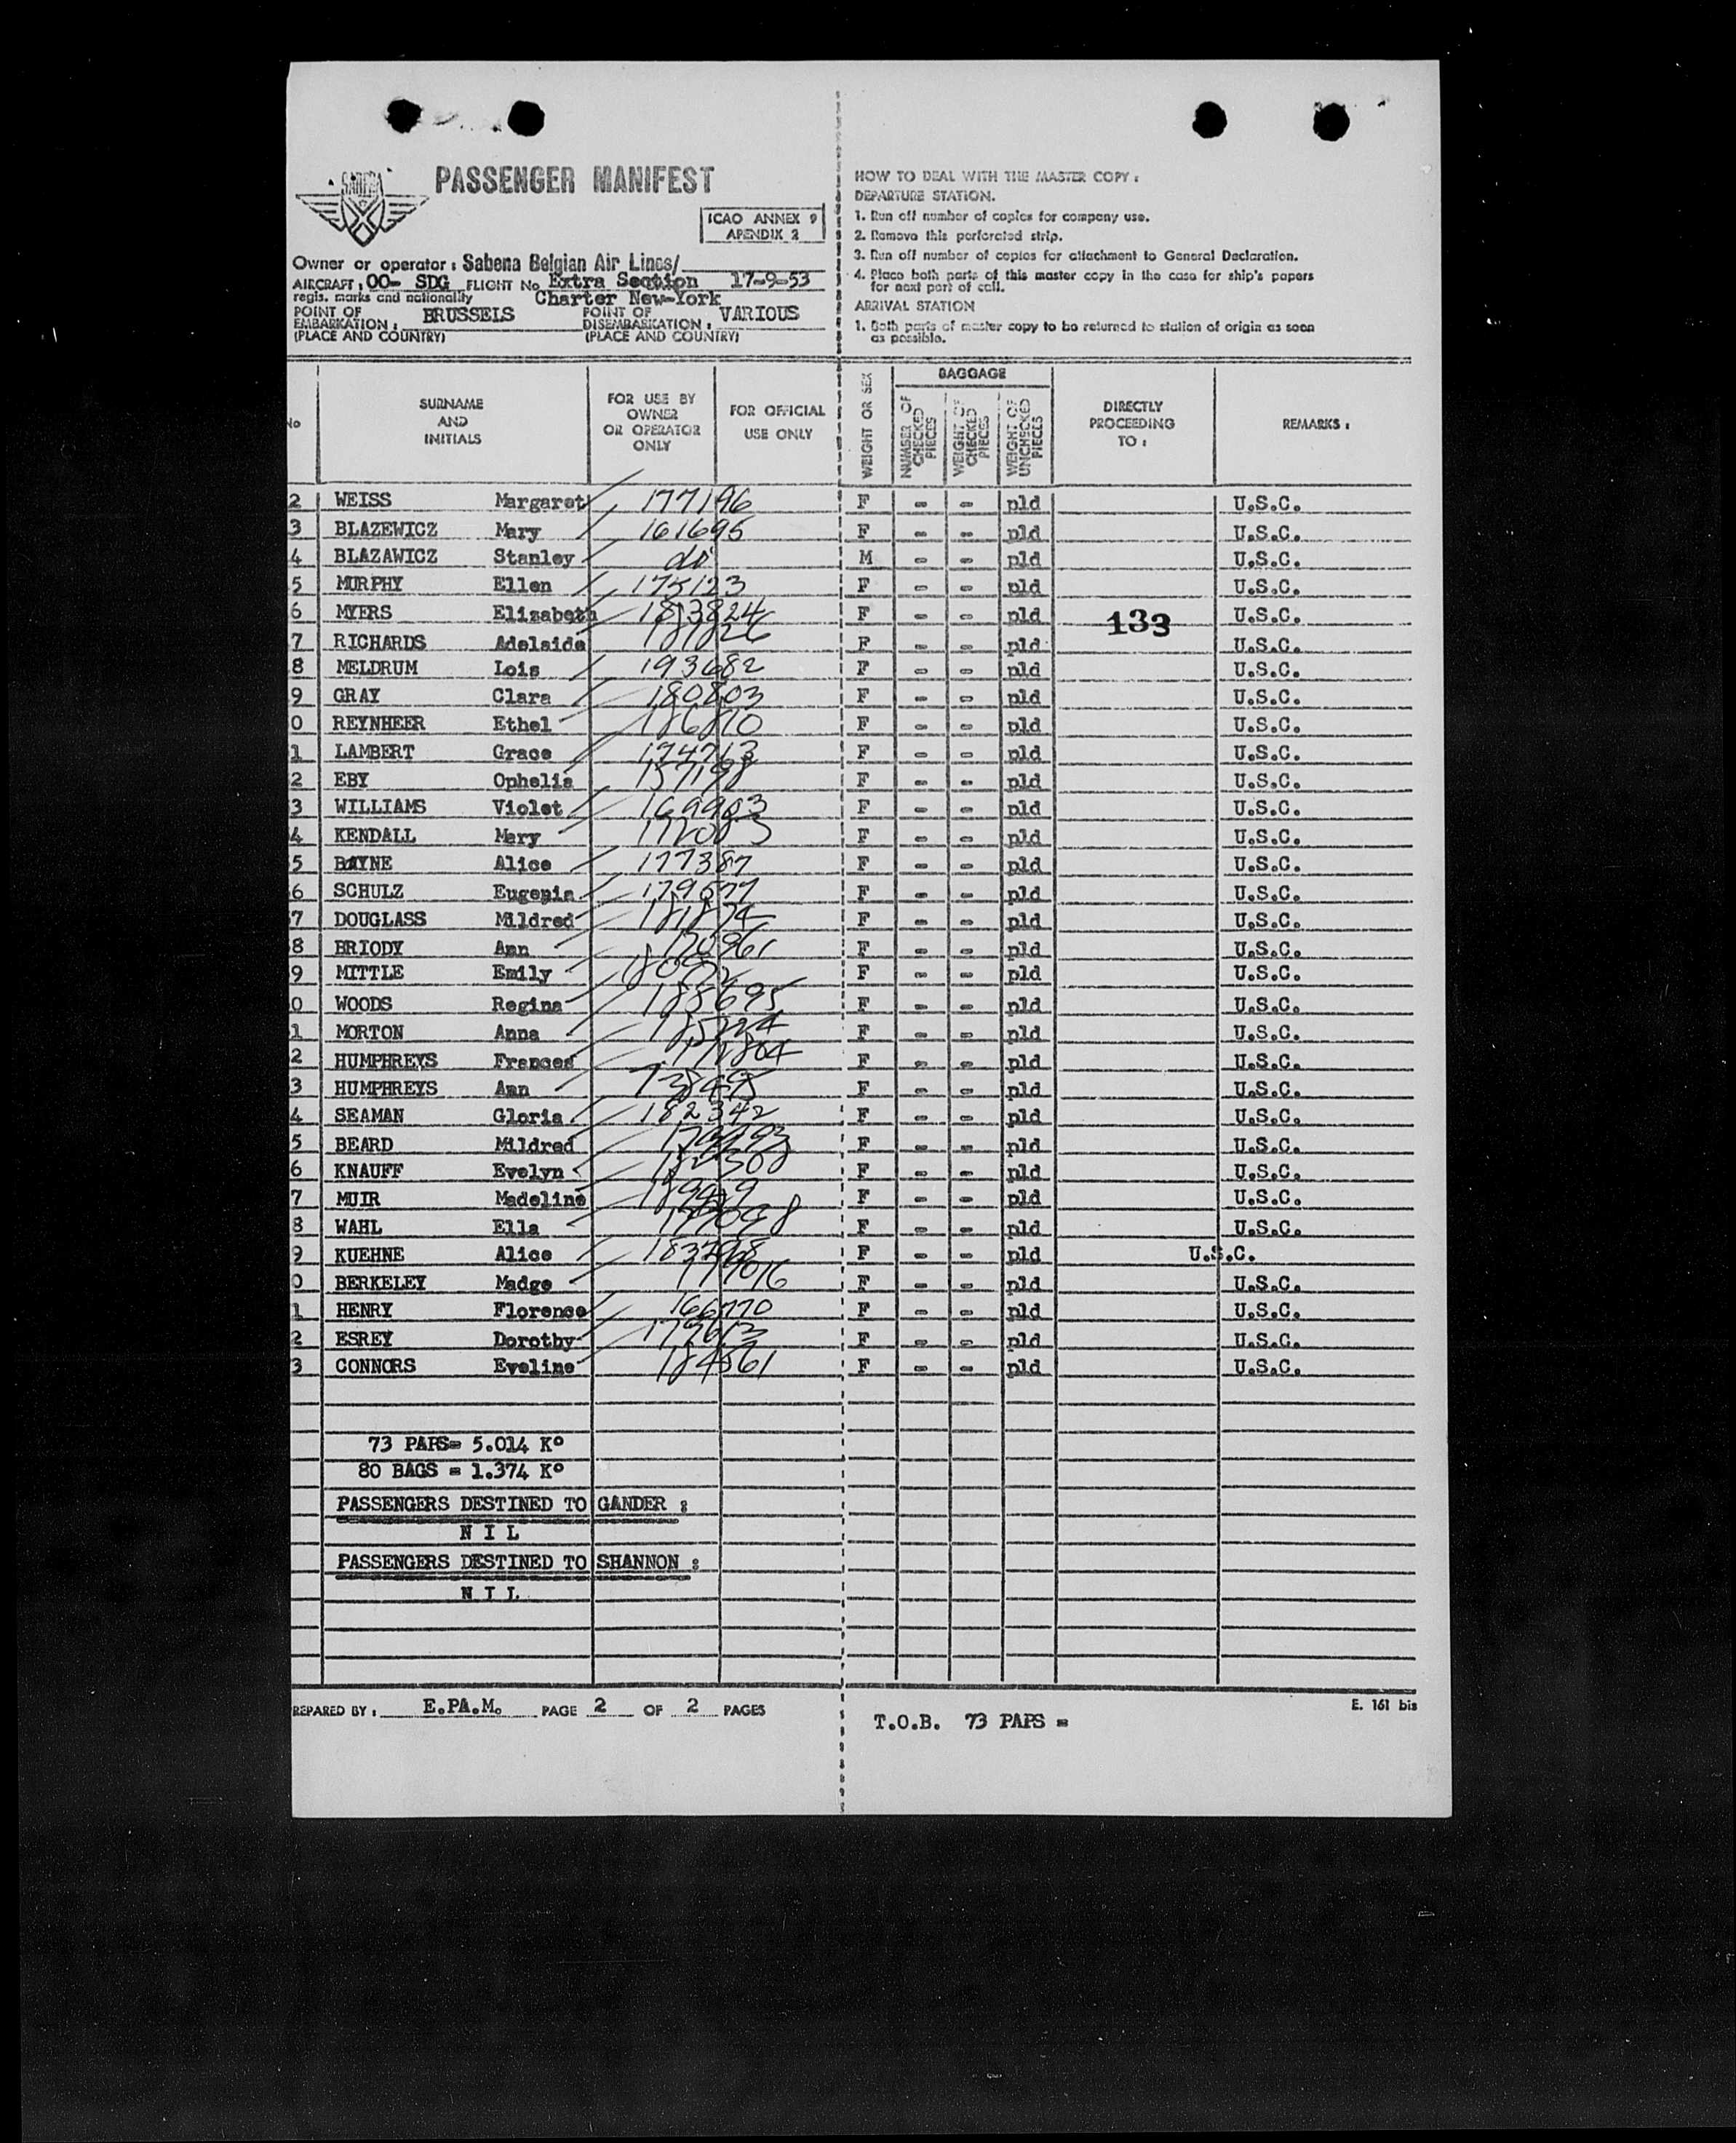 SABENA
PASSENGER MANIFEST
ICAO ANNEX 9
APENDIX 2
Owner or operator : Sabena Belgian Air Lines/
AIRCRAFT : OO- SDG FLIGHT No Extra Section 17-9-53
regis. marks and nationality Charter New-York
POINT OF EMBARKATION : BRUSSELS POINT OF DISEMBARKATION : VARIOUS
(PLACE AND COUNTRY) (PLACE AND COUNTRY)
HOW TO DEAL WITH THE MASTER COPY :
DEPARTURE STATION.
1. Run off number of copies for company use.
2. Remove this perforated strip.
3. Run off number of copies for attachment to General Declaration.
4. Place both parts of this master copy in the case for ship's papers
for next port of call.
ARRIVAL STATION
1. Both parts of master copy to be returned to station of origin as soon
as possible.
No SURNAME AND INITIALS FOR USE BY OWNER OR OPERATOR ONLY FOR OFFICIAL USE ONLY WEIGHT OR SEX BAGGAGE NUMBER OF CHECKED PIECES WEIGHT OF CHECKED PIECES WEIGHT OF UNCHECKED PIECES DIRECTLY PROCEEDING TO : REMARKS :
2 WEISS Margaret 177196 F - - pld U.S.C.
3 BLAZEWICZ Mary 161695 F - - pld U.S.C.
4 BLAZAWICZ Stanley do M - - pld U.S.C.
5 MURPHY Ellen 175123 F - - pld U.S.C.
6 MYERS Elizabeth 183824 F - - pld 133 U.S.C.
7 RICHARDS Adelaide 181826 F - - pld U.S.C.
8 MELDRUM Lois 193682 F - - pld U.S.C.
9 GRAY Clara 180803 F - - pld U.S.C.
0 REYNHEER Ethel 186870 F - - pld U.S.C.
1 LAMBERT Grace 174713 F - - pld U.S.C.
2 EBY Ophelia 157198 F - - pld U.S.C.
3 WILLIAMS Violet 169903 F - - pld U.S.C.
4 KENDALL Mary F - - pld U.S.C.
5 BAYNE Alice 177387 F - - pld U.S.C.
6 SCHULZ Eugenia 179577 F - - pld U.S.C.
7 DOUGLASS Mildred 181874 F - - pld U.S.C.
8 BRIODY Ann 170961 F - - pld U.S.C.
9 MITTLE Emily F - - pld U.S.C.
0 WOODS Regina 185695 F - - pld U.S.C.
1 MORTON Anna F - - pld U.S.C.
2 HUMPHREYS Frances F - - pld U.S.C.
3 HUMPHREYS Ann F - - pld U.S.C.
4 SEAMAN Gloria. 182342 F - - pld U.S.C.
5 BEARD Mildred F - - pld U.S.C.
6 KNAUFF Evelyn F - - pld U.S.C.
7 MUIR Madeline F - - pld U.S.C.
8 WAHL Ella 177098 F - - pld U.S.C.
9 KUEHNE Alice F - - pld U.S.C.
0 BERKELEY Madge 177016 F - - pld U.S.C.
1 HENRY Florence 166770 F - - pld U.S.C.
2 ESREY Dorothy 179613 F - - pld U.S.C.
3 CONNORS Eveline 184561 F - - pld U.S.C.
73 PAPS= 5.014 K°
80 BAGS = 1.374 K°
PASSENGERS DESTINED TO GANDER :
N I L
PASSENGERS DESTINED TO SHANNON :
N I L
REPARED BY : E.PA.M. PAGE 2 OF 2 PAGES
E. 161 bis
T.O.B. 73 PAPS =